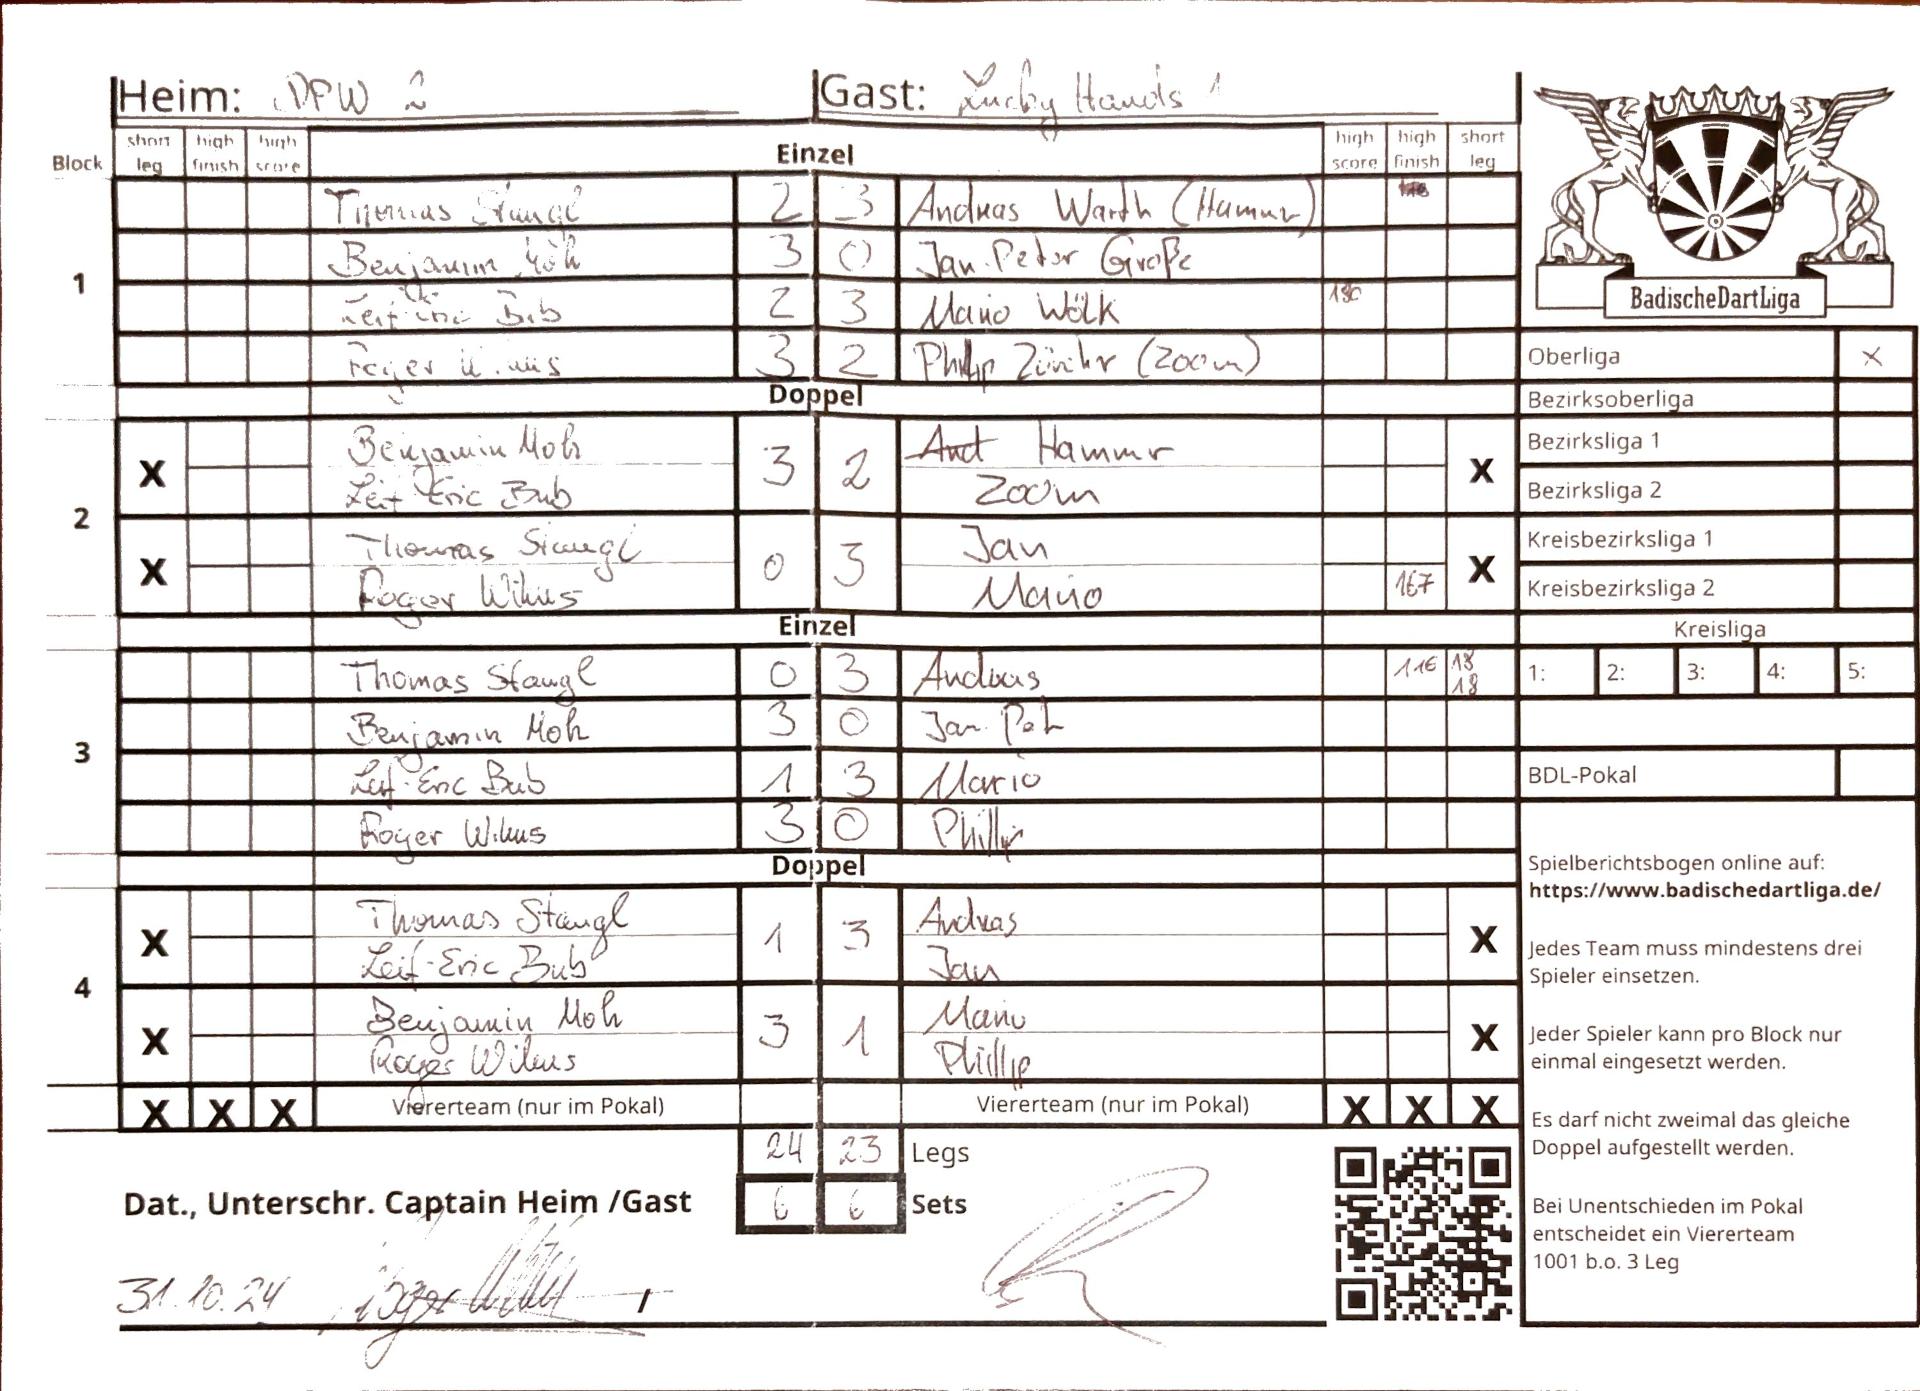 Heim: DPW 2 Gast: Lucky Hands 1
Block short leg high finish high score Einzel high score high finish short leg
Thomas Stangl 2 3 Andreas Warth (Hammer)
Benjamin Moh 3 0 Jan-Peter Große
1
Leif-Eric Bub 2 3 Mario Wölk 180
Roger Wilms 3 2 Philip Zürcher (Zoom)
Doppel
Benjamin Moh 3 2 Hammer
X Leif-Eric Bub Zoom X
2
Thomas Stangl 0 3 Jan
X Roger Wilms Mario 167 X
Einzel
Thomas Stangl 0 3 Andreas 116 18 18
Benjamin Moh 3 0 Jan-Pet
3
Leif-Eric Bub 1 3 Mario
Roger Wilms 3 0 Phillip
Doppel
Thomas Stangl 1 3 Andreas
X Leif-Eric Bub Jan X
4
Benjamin Moh 3 1 Mario
X Roger Wilms Phillip X
X X X Viererteam (nur im Pokal) Viererteam (nur im Pokal) X X X
24 23 Legs
Dat., Unterschr. Captain Heim /Gast 6 6 Sets
31.10.24
BadischeDartLiga
Oberliga X
Bezirksoberliga
Bezirksliga 1
Bezirksliga 2
Kreisbezirksliga 1
Kreisbezirksliga 2
Kreisliga
1: 2: 3: 4: 5:
BDL-Pokal
Spielberichtsbogen online auf:
https://www.badischedartliga.de/
Jedes Team muss mindestens drei
Spieler einsetzen.
Jeder Spieler kann pro Block nur
einmal eingesetzt werden.
Es darf nicht zweimal das gleiche
Doppel aufgestellt werden.
Bei Unentschieden im Pokal
entscheidet ein Viererteam
1001 b.o. 3 Leg